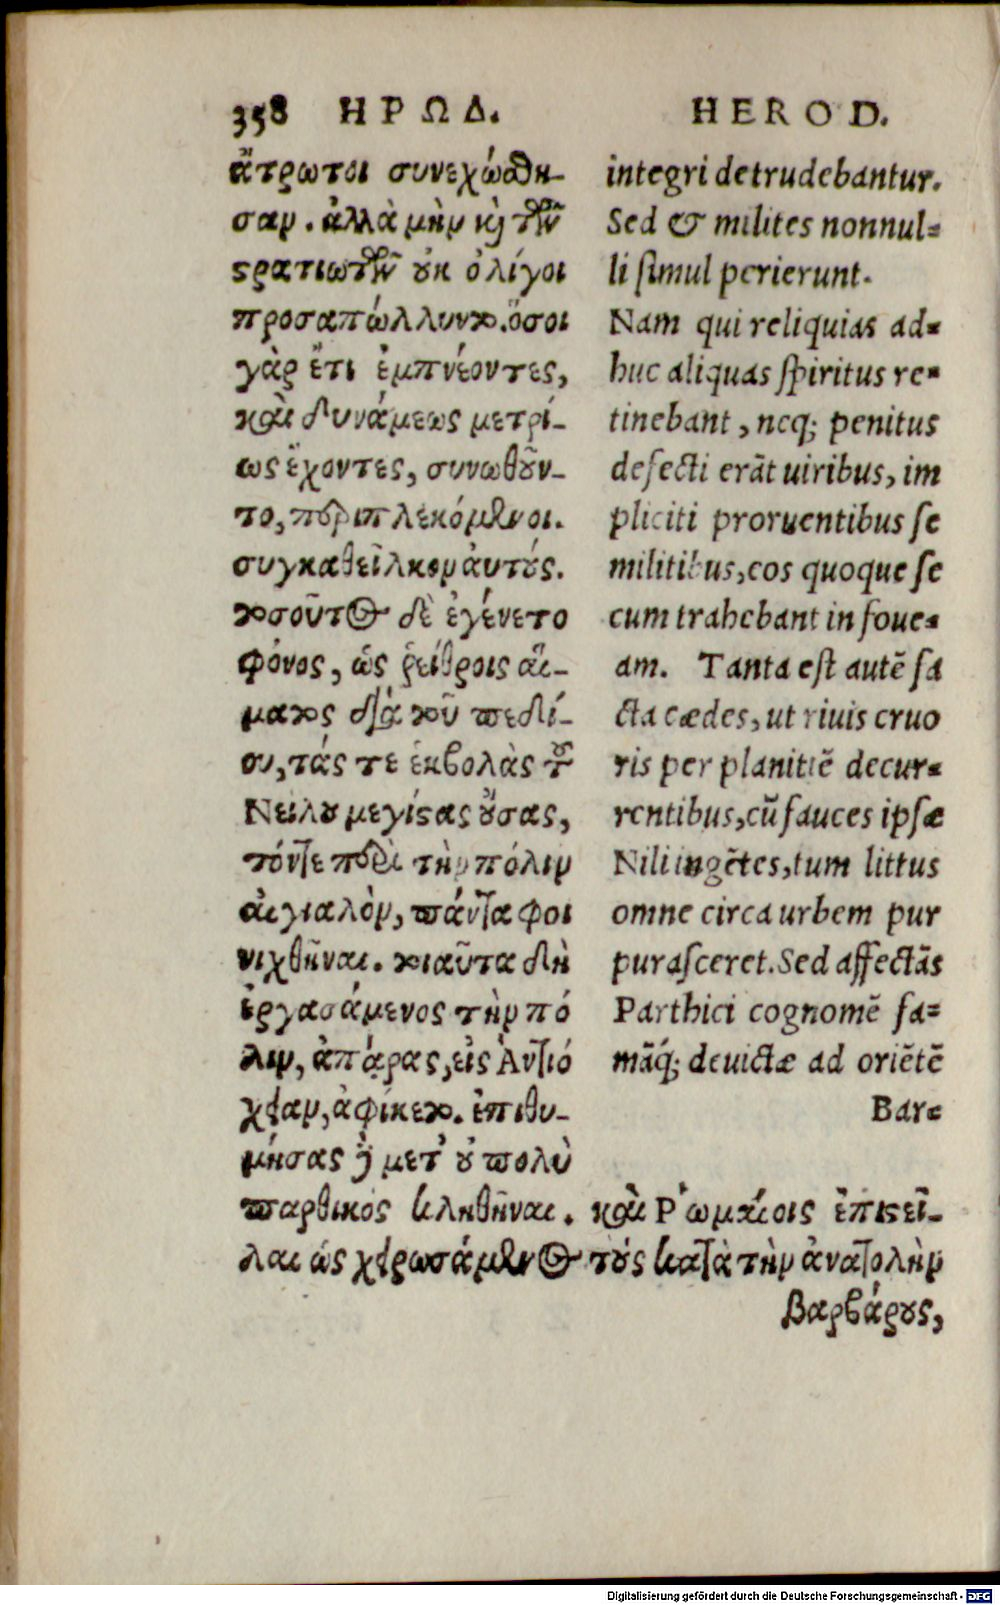 358 ΗΡΩΔ.
ἄτρωτοι συνεχώσθη-
σαν. ἀλλὰ μὴν καὶ τῶν
στρατιωτῶν οὐκ ὀλίγοι
προσαπώλλυντο. ὅσοι
γὰρ ἔτι ἐμπνέοντες,
καὶ δυνάμεως μετρί-
ως ἔχοντες, συνωθοῦν-
το, περιπλεκόμενοι.
συγκαθεῖλκον αὐτούς.
τοσοῦτος δὲ ἐγένετο
φόνος, ὡς ῥείθροις αἵ-
ματος διὰ τοῦ πεδί-
ου, τάς τε ἐκβολὰς τοῦ
Νείλου μεγίστας οὔσας,
τόντε περὶ τὴν πόλιν
αἰγιαλὸν, πάντα φοι
νιχθῆναι. τοιαῦτα δὴ
ἐργασάμενος τὴν πό
λιν, ἀπάρας, εἰς Ἀντιό
χειαν, ἀφίκετο. ἐπιθυ-
μήσας δὲ μετ' οὐ πολὺ
παρθικὸς κληθῆναι. καὶ Ῥωμαίοις ἐπιστεῖ-
λαι ὡς χειρωσάμενος τοὺς κατὰ τὴν ἀνατολὴν
βαρβάρους,
HEROD.
integri detrudebantur.
Sed & milites nonnul=
li simul perierunt.
Nam qui reliquias ad=
huc aliquas spiritus re=
tinebant, neq; penitus
defecti erãt uiribus, im
pliciti proruentibus se
militibus, eos quoque se
cum trahebant in foue=
am. Tanta est autẽ fa
cta cædes, ut riuis cruo
ris per planitiẽ decur=
rentibus, cũ fauces ipsæ
Nili ingẽtes, tum littus
omne circa urbem pur
purasceret. Sed affectãs
Parthici cognomẽ fa=
mãq́; deuictæ ad oriẽtẽ
Bar=
Digitalisierung gefördert durch die Deutsche Forschungsgemeinschaft - DFG